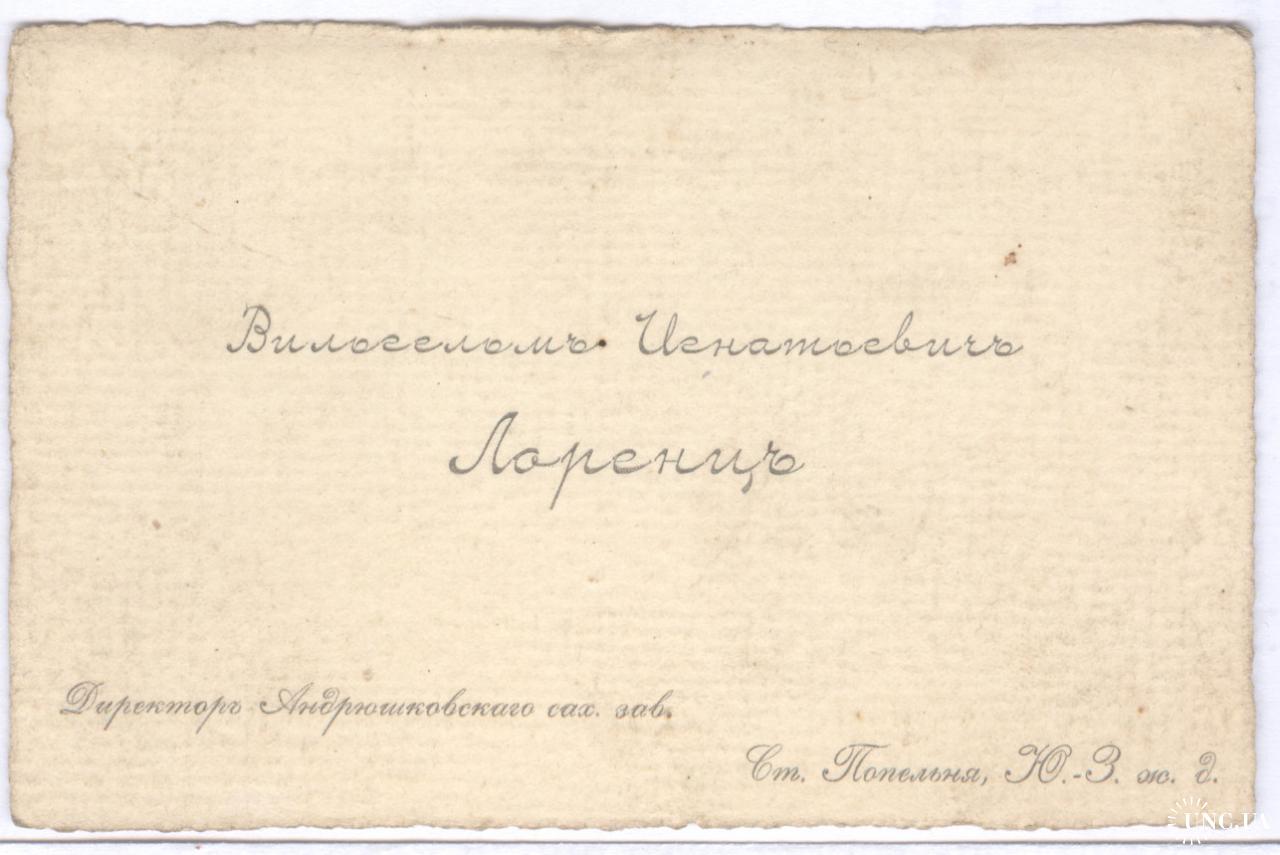 Вильгельмъ Игнатьевичъ
Лоренцъ
Директоръ Андрюшковскаго сах. зав.
Ст. Попельня, Ю.-З. ж. д.
UNC.UA